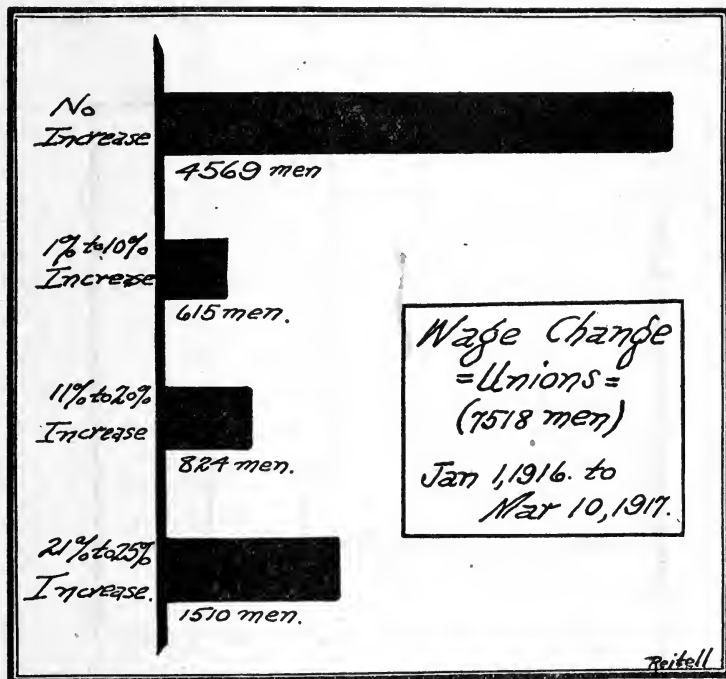 No
Increase
4569 men
1% to 10%
Increase
615 men.
11% to 20%
Increase
824 men.
21% to 25%
Increase.
1510 men.
Wage Change
=Unions=
(7518 men)
Jan 1, 1916. to
Mar 10, 1917.
Reitell